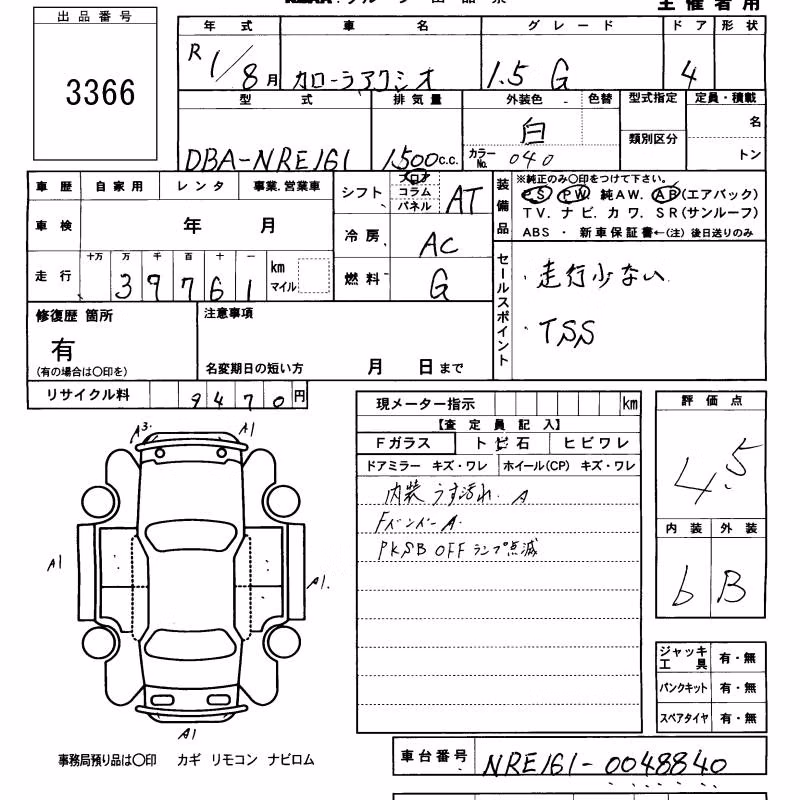 主催者用
出品番号
3366
年式 車名 グレード ドア 形状
R1/8月 カローラアクシオ 1.5 G 4
型式 排気量 外装色 色替 型式指定 定員・積載
DBA-NRE161 1500c.c. 白 カラーNo. 040 類別区分 名 トン
車歴 自家用 レンタ 事業.営業車
車検 年 月
走行 十万 万 千 百 十 一 km マイル
39761
シフト フロア コラム パネル AT
冷房 AC
燃料 G
装備品
※純正のみ○印をつけて下さい。
PS PW 純AW. AB(エアバック)
TV. ナビ. カワ. SR(サンルーフ)
ABS ・ 新車保証書←(注)後日送りのみ
セールスポイント
・走行少ない
・TSS
修復歴 箇所
有
(有の場合は○印を)
注意事項
名変期日の短い方 月 日まで
リサイクル料 9470円
現メーター指示 km
【査定員記入】
Fガラス トビ石 ヒビワレ
ドアミラー キズ・ワレ ホイール(CP) キズ・ワレ
内装 うす汚れ. A
Fバンパー A.
PKSB OFF ランプ点滅
評価点
4.5
内装 外装
b B
A3 A1
A1
A1.
A1
ジャッキ工具 有・無
パンクキット 有・無
スペアタイヤ 有・無
事務局預り品は○印 カギ リモコン ナビロム
車台番号 NRE161-0048840